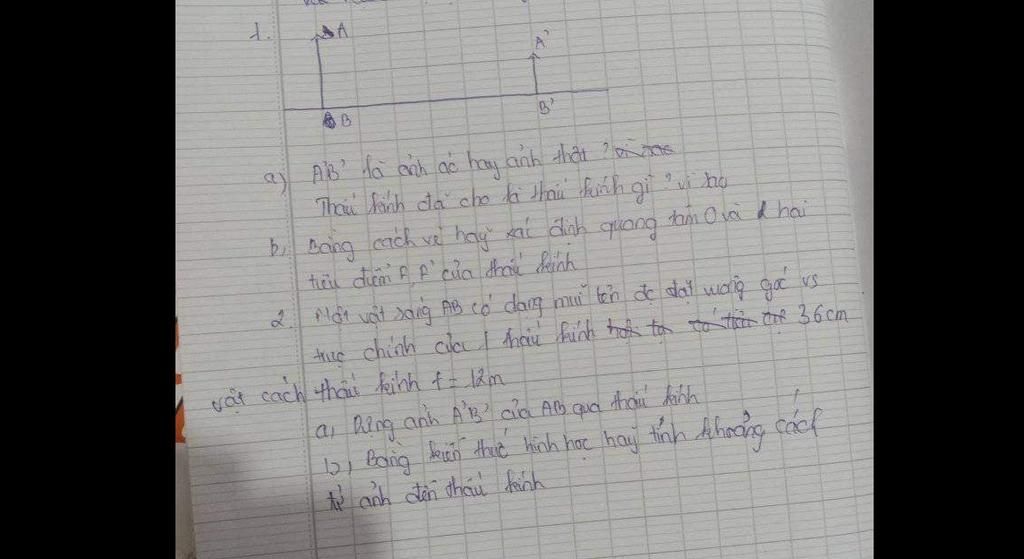 1.
A
A'
B
B'
a) A'B' là ảnh ảo hay ảnh thật?
Thấu kính đã cho là thấu kính gì? vì
b, Bằng cách vẽ hãy xác định quang tâm O và hai
tiêu điểm F, F' của thấu kính
2. Một vật sáng AB có dạng mũi tên đc đặt vuông góc vs
trục chính của 1 thấu kính 36cm
vật cách thấu kính f = 12m
a, Dựng ảnh A'B' của AB qua thấu kính
b, Bằng kiến thức hình học hãy tính khoảng cách
từ ảnh đến thấu kính